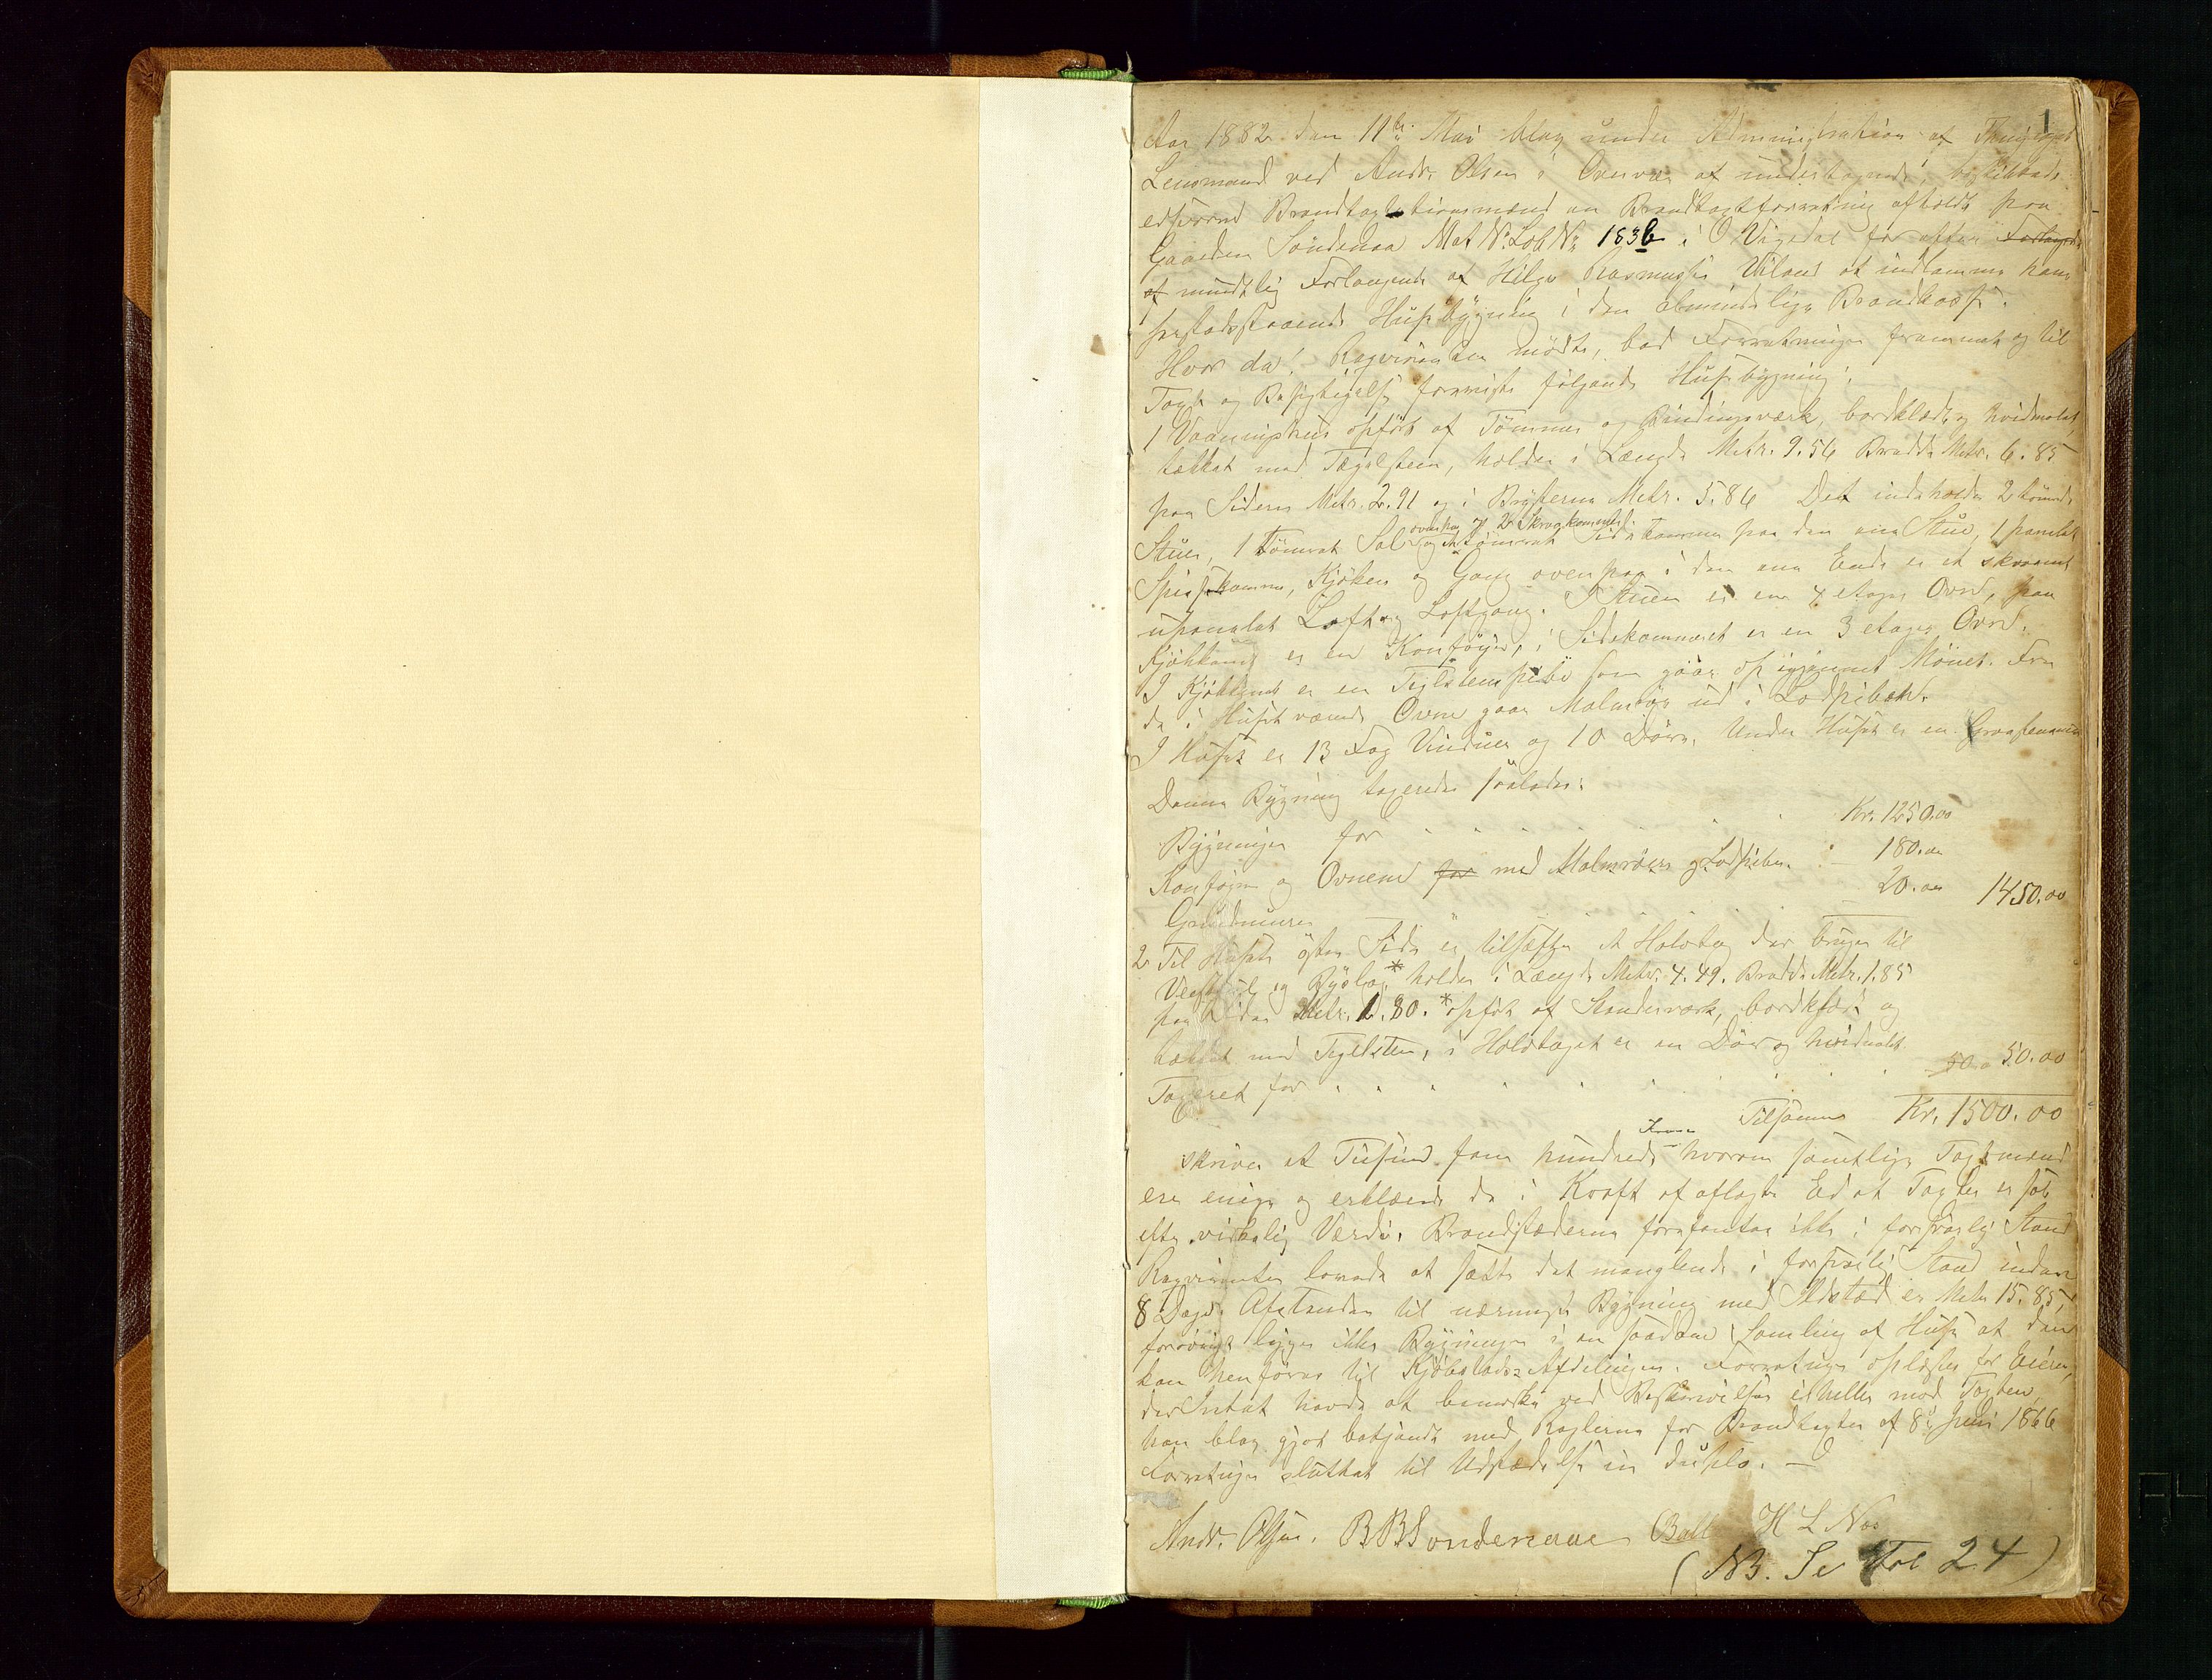 1
Aar 1882 den 11te Mai blev under Administration af
Lensmand ved Andr. Olsen i Overvær af undertegnede,
edsvorne Brandtaxtationsmænd en Brandtaxtforretning afholdt paa
Gaarden Söndenaa Mat No Løb No 183b i Ö. Vigedal for efter Forlangende
af mundtlig Forlangende af Helge Rasmussen Uiland at indlemme hans
paastaaende Husebygning i den almindelige Brandkasse.
Hvor da! Reqvirenten mödte, bad Forretningen fremmet og til
Taxt og Besigtigelse foreviste følgende Husebygning:
1 Vaaningshus opført af Tömmer og Bindingsværk, bordklædt og hvidmalet,
tækket med Tægelsten, holder i Længde Metr. 9.56 Bredde Metr. 6.85
paa Siderne Metr. 2.91 og i Røsterne Metr. 5.86 Det indeholder 2 tömrede
ovenpaa 2 Skraakammere.
Stuer, 1 tömret Sal og et tömret Sidekammer paa den ene Stue, 1 panelet
Spisekammer, Kjöken og Gang ovenpaa i den ene Ende er et skraamt
upanelet Loft og Loftgang. I Stuen er en 4 etages Ovn, paa
Kjökkenet er en Komføyr, i Sidekammeret er en 3 etages Ovn.
I Kjökkenet er en Teglstenspibe som gaar op igjennem Mönet. Fra
de i Huset værende Ovne gaar Malmrör ud i Lodpiben.
I Huset er 13 Fag Vinduer og 10 Döre. Under Huset er en Graastensmur
Denne Bygning taxeredes saaledes:
Bygningen for Kr. 1250.00
Komføyr og Ovnene for med Malmrören og Lodpiben - 180.00
Grundmuren 20.00 1450.00
2 Til Husets östre Side er tilsat et Halvtag der bruges til
og holder i Længde Metr. 4.49. Bredde Metr. 1.85
paa Siden Metr. 1.80. * opført af Standerværk, bordklædt og
tækket med Teglsten, i Halvtaget er en Dör og hvidmalt
Taxeret for 50.00 50.00
Tilsammen Kr. 1500.00
Kroner
skriver et Tusind fem hundrede hvorom samtlige Taxtmænd
ere enige og erklærede de i Kraft af aflagte Ed at Taxten er sat
efter virkelig Værdi. Brandstæderne forefantes ikke i forsvarlig Stand
Reqvirenten lovede at sætte det manglende i forsvarlig Stand inden
8 Dage. Afstanden til nærmeste Bygning med Ildsted er Metr. 15.85,
forövrigt ligger ikke Bygningen i en saadan Samling af Huse at den
kan henføres til Kjöbstads-Afdelingen. Forretningen oplæstes for Eieren,
der Intet havde at bemærke ved Beskrivelsen eiheller mod Taxten,
han blev gjort bekjendt med Reglerne for Brandtaxter af 8de Juni 1866
Forretningen sluttet til Udstædelse in duplo. —
Andr. Olsen. B B Sondenaae H L Næs
(NB. Se Fol 24)